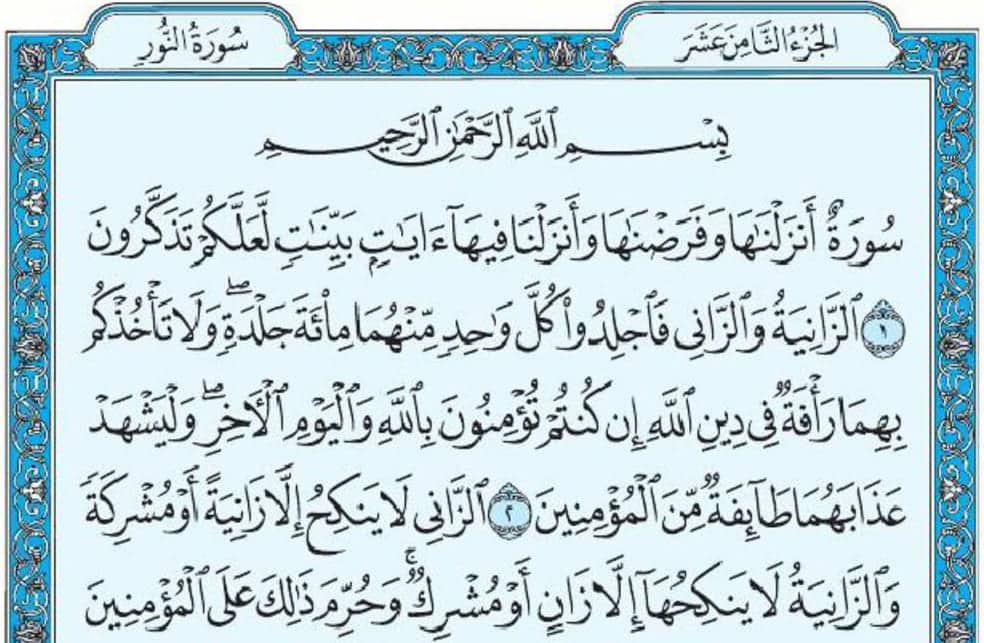 الجُزْءُ الثَّامِنَ عَشَرَ
سُورَةُ النُّورِ
بِسْمِ ٱللَّهِ ٱلرَّحْمَٰنِ ٱلرَّحِيمِ
سُورَةٌ أَنزَلْنَٰهَا وَفَرَضْنَٰهَا وَأَنزَلْنَا فِيهَآ ءَايَٰتٍۭ بَيِّنَٰتٍ لَّعَلَّكُمْ تَذَكَّرُونَ
١ ٱلزَّانِيَةُ وَٱلزَّانِى فَٱجْلِدُوا۟ كُلَّ وَٰحِدٍ مِّنْهُمَا مِا۟ئَةَ جَلْدَةٍۖ وَلَا تَأْخُذْكُم
بِهِمَا رَأْفَةٌ فِى دِينِ ٱللَّهِ إِن كُنتُمْ تُؤْمِنُونَ بِٱللَّهِ وَٱلْيَوْمِ ٱلْءَاخِرِۖ وَلْيَشْهَدْ
عَذَابَهُمَا طَآئِفَةٌ مِّنَ ٱلْمُؤْمِنِينَ ٢ ٱلزَّانِى لَا يَنكِحُ إِلَّا زَانِيَةً أَوْ مُشْرِكَةً
وَٱلزَّانِيَةُ لَا يَنكِحُهَآ إِلَّا زَانٍ أَوْ مُشْرِكٌۚ وَحُرِّمَ ذَٰلِكَ عَلَى ٱلْمُؤْمِنِينَ